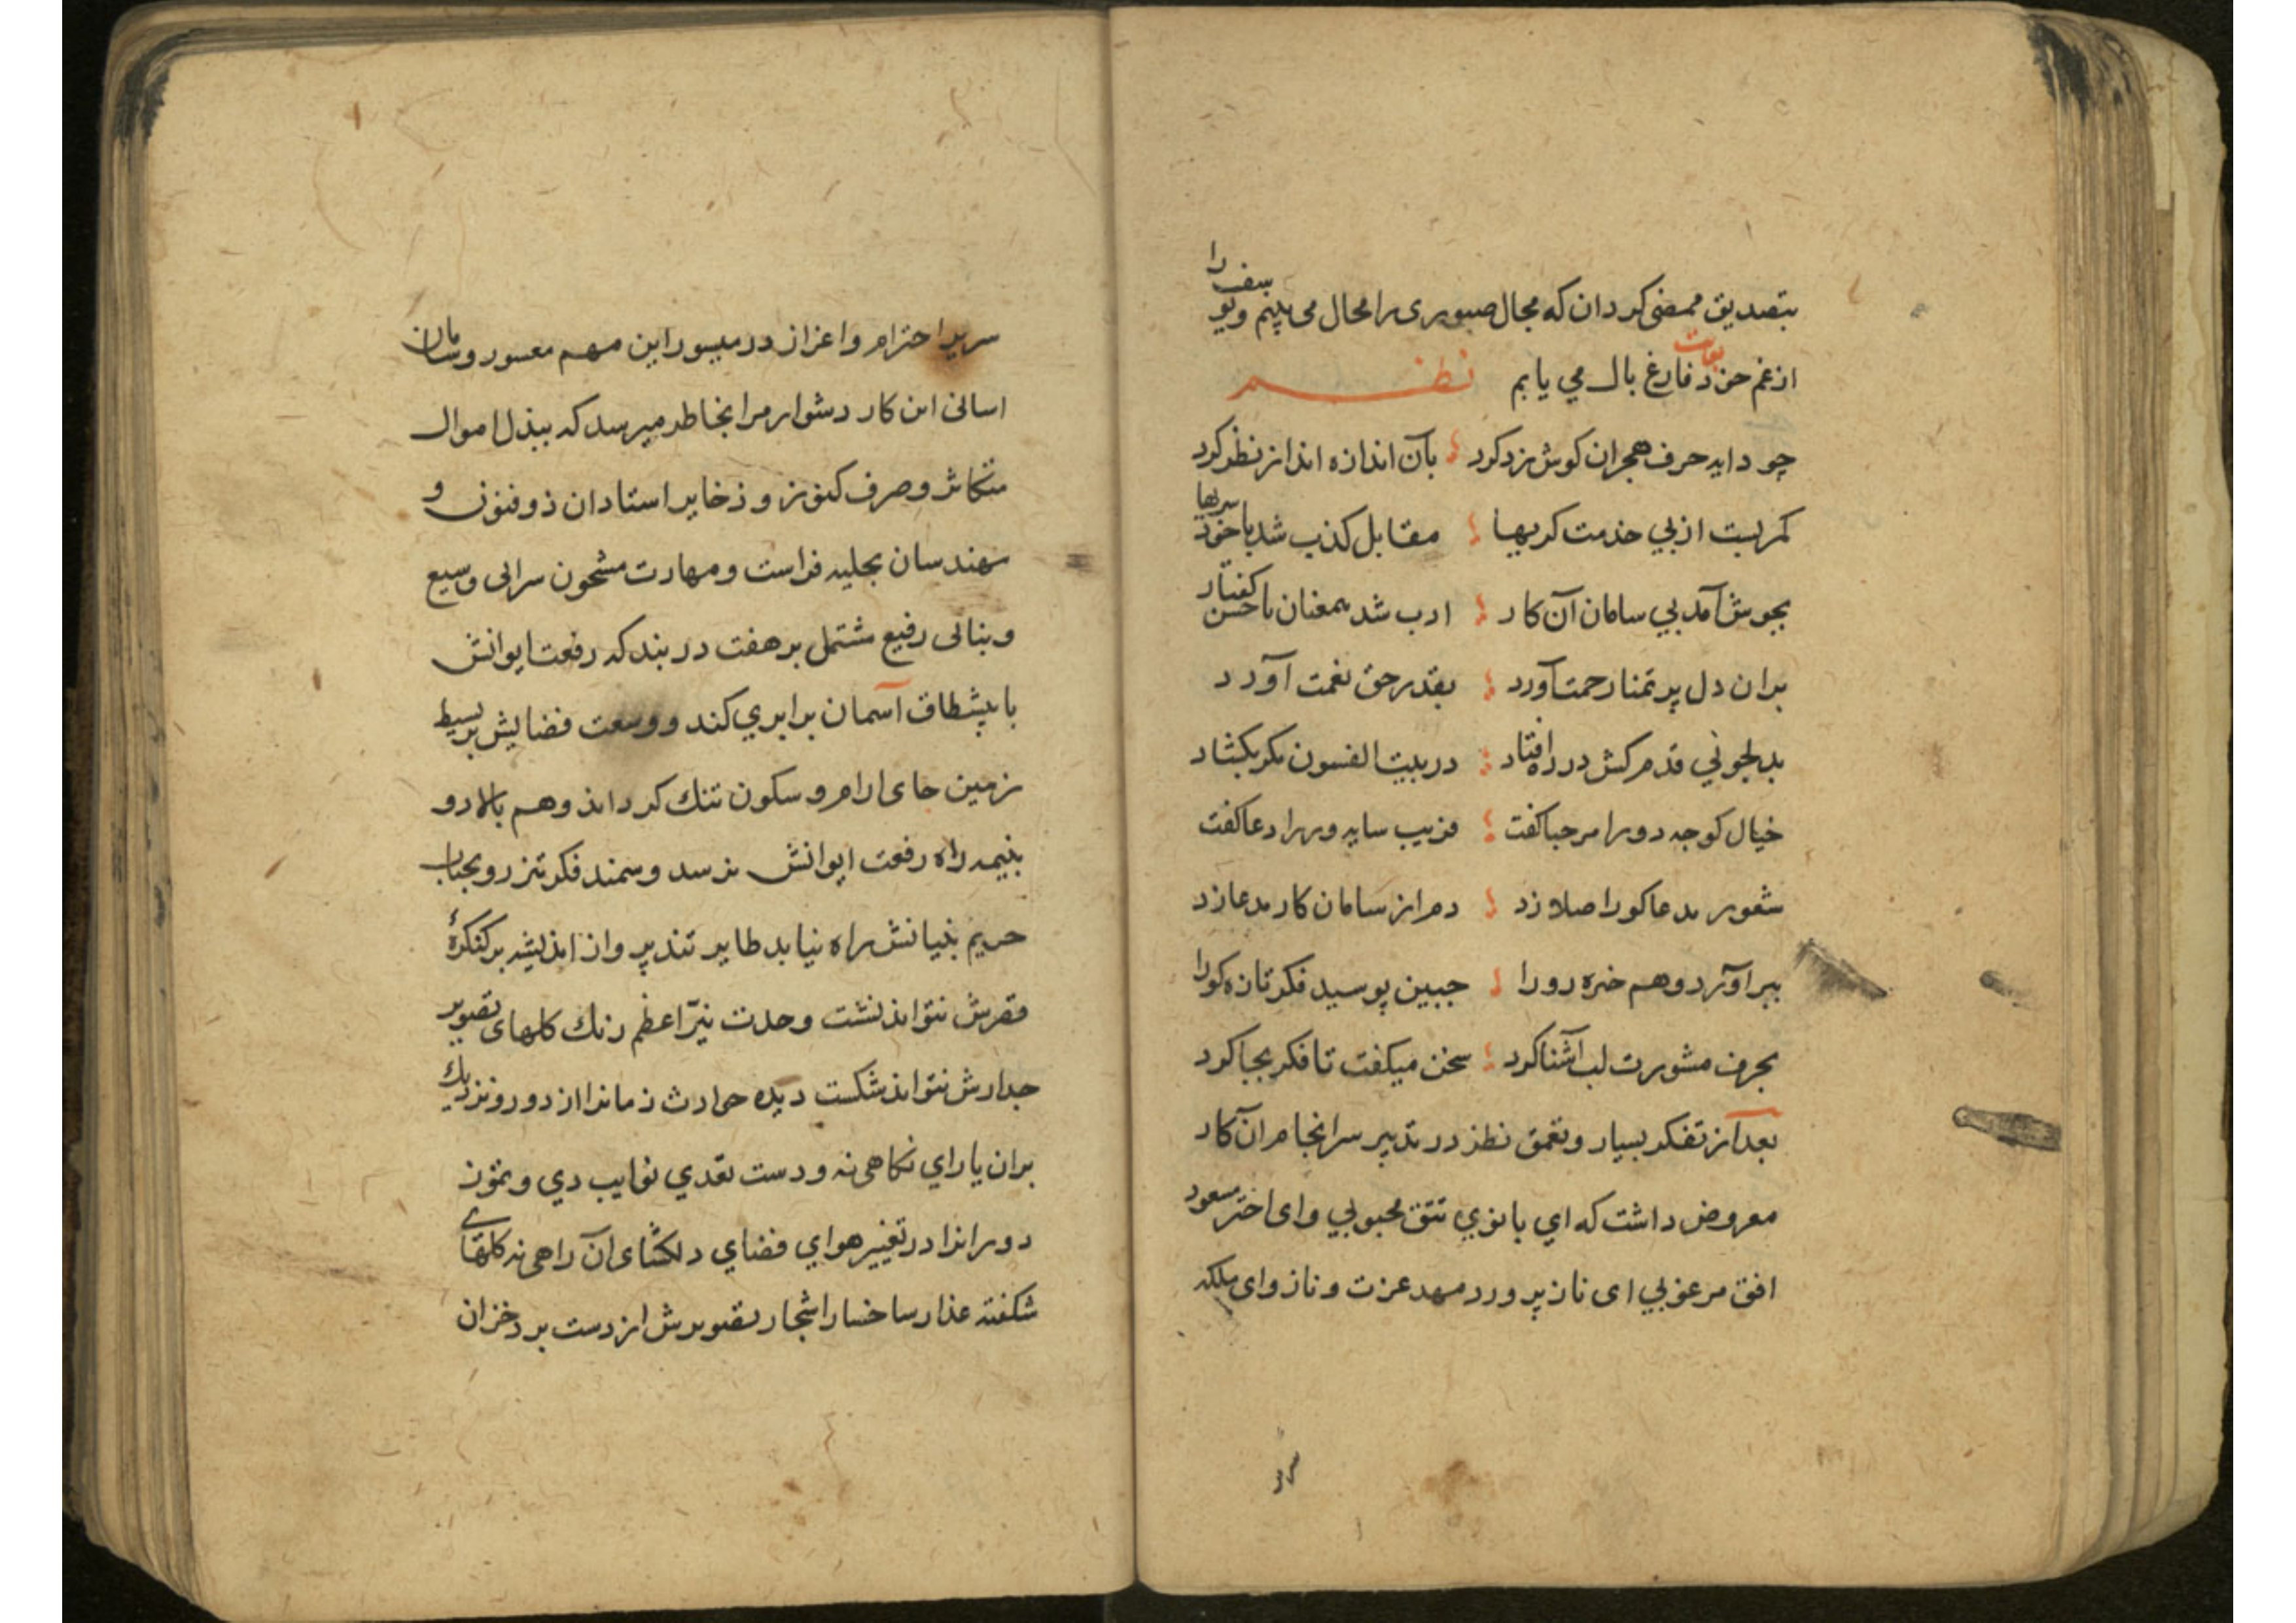 بتصدیق ممضی کردان که مجال صبوری را محال می بینم ویوسف را
از غم حزد فارغ بال می یابم نظم
چو دایه حرف هجران کوش زد کرد بآن اندازه انداز نظر کرد
کمر بست از پی خذمت کریها مقابل کذب شد با خود سریها
بجوش آمد پی سامان آن کار ادب شد همعنان با حسن کفتار
بران دل پر تمنا رحمت آورد بقدر حق نعمت آورد
بدلجوئی قدم کش در ره افتاد در بیت الفسون مکر بکشاد
خیال کوجه دو را مرحبا کفت فریب سایه ور را دعا کفت
شعور مدعا کو را صلا زد دم از سامان کار مدعا زد
ببر آورد وهم خیره رو را جبین بوسید فکر تازه کو را
بحرف مشورت لب آشنا کرد سخن میکفت تا فکر بجا کرد
بعد از تفکر بسیار و تعمق نظر در تدبیر سرانجام آن کار
معروض داشت که ای بانوی تتق محبوبی و ای اختر مسعود
افق مرغوبی ای ناز پرورد مهد عزت و ناز و ای ملکه
سریر
سریر احترام و اعزاز در میسور این مهم معسور و سامان
اسانی این کار دشوار مرا بخاطر میرسد که ببذل اموال
متکاثر و صرف کنوز و ذخایر استادان ذوفنون و
مهندسان بحلیه فراست و مهارت مشحون سرائی وسیع
و بنائی رفیع مشتمل بر هفت در بند که رفعت ایوانش
با پیشطاق آسمان برابری کند و وسعت فضایش بر بسیط
زمین جای ارام و سکون تنك کرداند وهم بالا دو
بنیمه راه رفعت ایوانش نرسد و سمند فکر تیز رو بجناب
حریم بنیانش راه نیابد طایر تند پرواز اندیشه بر کنکرهٔ
قصرش نتواند نشست وحدت نیّر اعظم رنك کلهای تصویر
جدارش نتواند شکست دیده حوادث زمانرا از دور و نزدیك
بران یارای نکاهی نه و دست تعدی نوایب دی و تموز
دورانرا در تغییر هوای فضای دلکشای آن راهی نه کلهای
شکفته عذار ساخسار اشجار تصویرش از دست برد خزان